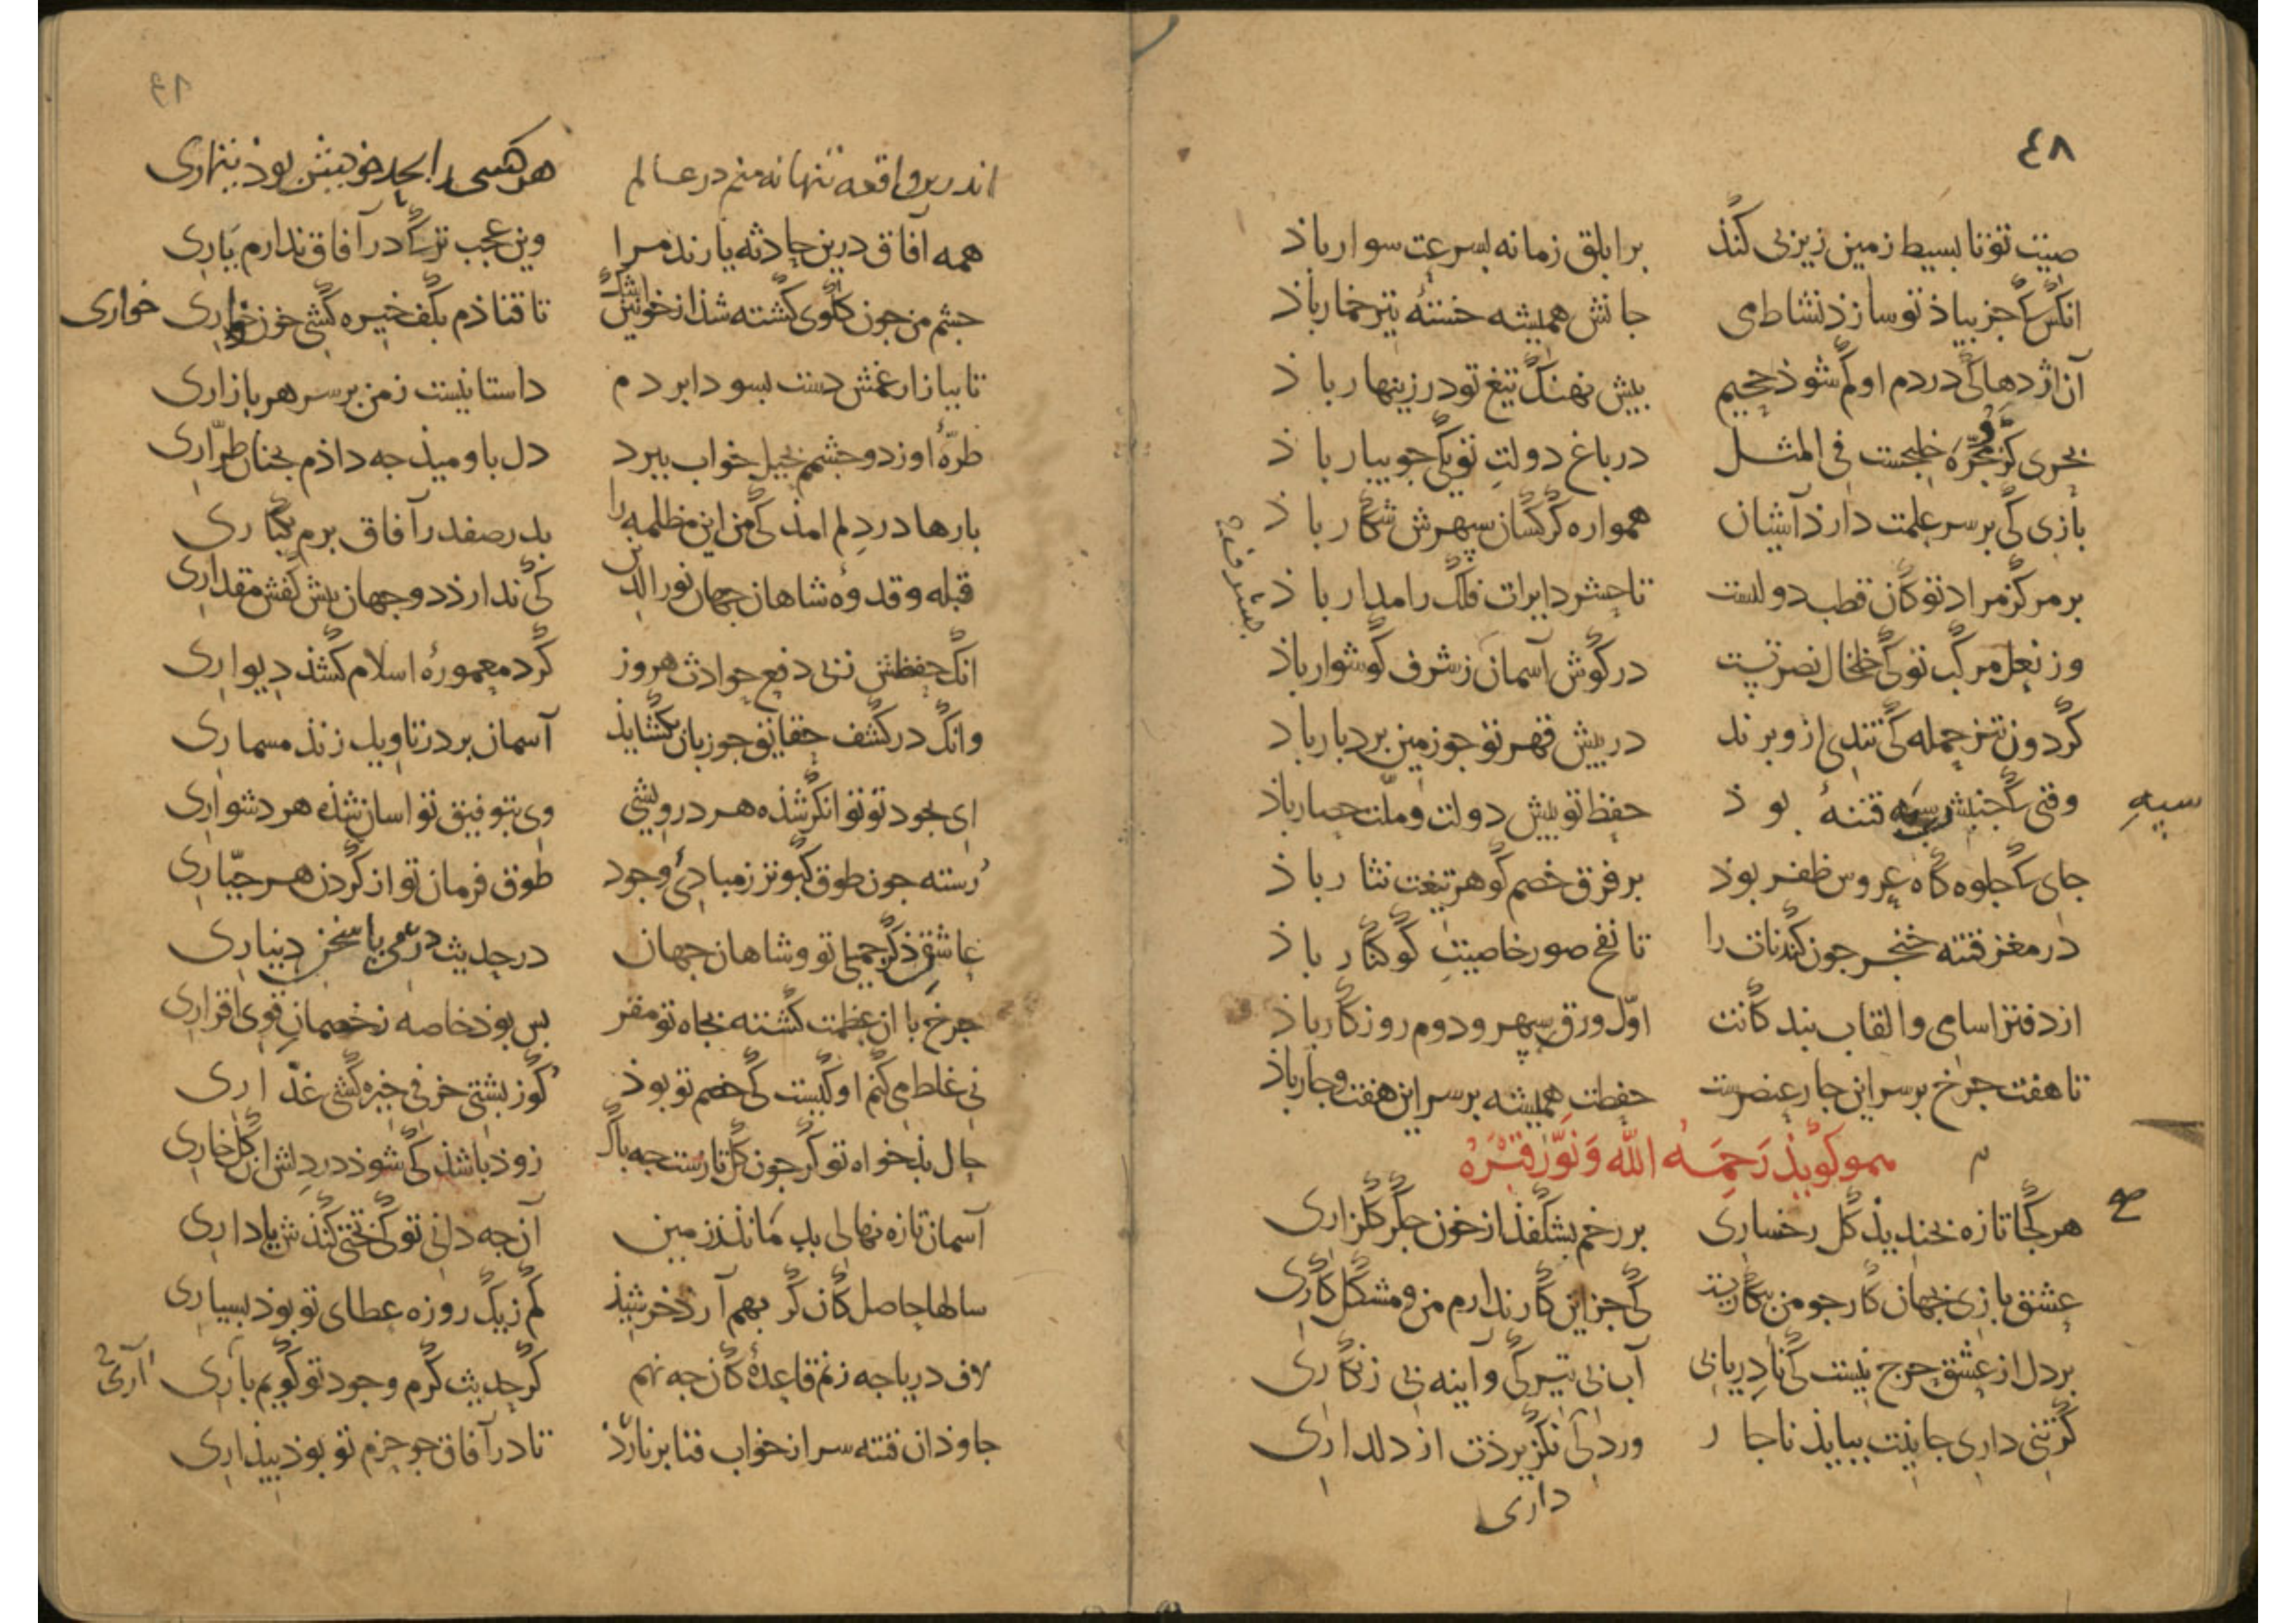 ٤٨
صیت تو تا بسیط زمین زیر پی کند برابلق زمانه بسرعت سوار باذ
انکس که جز بیاذ تو سازذ نشاط می جانش همیشه خستهٔ تیر خمار باذ
آن اژدها کی در دم او کم شوذ جحیم بیش نهنک تیغ تو در زینهار باذ
بحری کز مجرّه خلیجست فی المثل در باغ دولتِ تو یکی جویبار باذ
بازی کی بر سر علمت دارذ آشیان همواره کرکسان سپهرش شکار باذ
بر مرکز مراد تو کان قطب دولتست تا حشر دایرات فلک را مدار باذ
وز نعل مرکب تو کی خلخال نصرتست در کوش آسمان ز شرف کوشوار باذ
کردون تیز حمله کی تندی ازو برند در بیش قهر تو جو زمین بردبار باد
وقتی که جنبش سیه فتنهٔ بوذ حفظ تو بیش دولت و ملّت حصار باذ
سیهِ
جای که جلوه کاه عروس ظفر بوذ بر فرق خصم کوهر تیغت نثار باذ
در مغز فتنه خنجر جون کندنات را تا نفخ صور خاصیتِ کوکنار باذ
از دفتر اسامی و القاب بندکانت اوّل ورق سپهر و دوم روزکار باذ
تا هفت جرخ بر سر این جار عنصرست حفظت همیشه بر سر این هفت و جار باذ
همو کویذ رَحِمَهُ اللّه وَنَوَّرَ قَبْرَهُ
هر کجا تازه بخندیذ کل رخساری بر رخم بشکفذ از خون جکر کلزاری
عشق بازی بجهان کار جو من بیکاریست کی جز این کار ندارم من و مشکل کاری
بر دل از عشق حرج نیست کی نادر یابی آب بی تیرکی و آینه بی زنکاری
کر تنی داری جانیت بیایذ ناجار ور دلی نکزیرذت از دلداری
داری
اندرین واقعه تنها نه منم در عالم هر کسی را بحد خویش بوذ تیماری
همه آفاق درین حادثه یارند مرا وین عجب تر که در آفاق ندارم یاری
جشم من جون کلوی کشته شذ از خون سرشک تا فتاذم بکف خیره کشی خون خواری
خواری
تا ببازار غمش دست بسودا بردم داستانیست ز من بر سر هر بازاری
طرّهٔ او ز دو جشمم بحیل خواب ببرد دل باومیذ جه داذم بجنان طرّاری
بارها در دلم امذ کی من این مظلمه را بدر صفدر آفاق برم یکباری
قبله و قدوهٔ شاهان جهان نور الدین کی ندارذ دو جهان بیش کفش مقداری
انک حفظش ز پی دفع حوادث هر روز کرد معمورهٔ اسلام کشذ دیواری
وانک در کشف حقایق جو زبان بکشایذ آسمان بر در تاویل زنذ مسماری
ای بجود تو توانکر شذه هر درویشی وی بتوفیق تو اسان شذه هر دشواری
رُسته جون طوق کبوتر ز مبادیٔ وجود طوق فرمان تو از کردن هر جبّاری
عاشق ذکر جمیل تو و شاهان جهان در حدیث درمی یا سخن دیناری
جرخ با ان عظمت کشته بجاه تو مقر بس بوذ خاصه ز خصمان قوی اقراری
نی غلط می کنم او کیست کی خصم تو بوذ کوز بشتی خرفی خیره کشی غدّاری
حال بذخواه تو کر جون کل تازست جه باک زوذ باشذ کی شوذ در دلش ان کل خاری
آسمان تازه نهالی بلب ماند ز زمین آن جه دانی تو کی بختی کنذش یا داری
سالها حاصل کان کر بهم آرذ خرشیذ کم ز یک روزه عطای تو بوذ بسیاری
لاف دریا جه زنم قاعدهٔ کان جه نهم کر حدیث کرم و جود تو کویم باری
آری
جاوذان فتنه سر از خواب فنا بر نارذ تا در آفاق جو حزم تو بوذ بیذاری